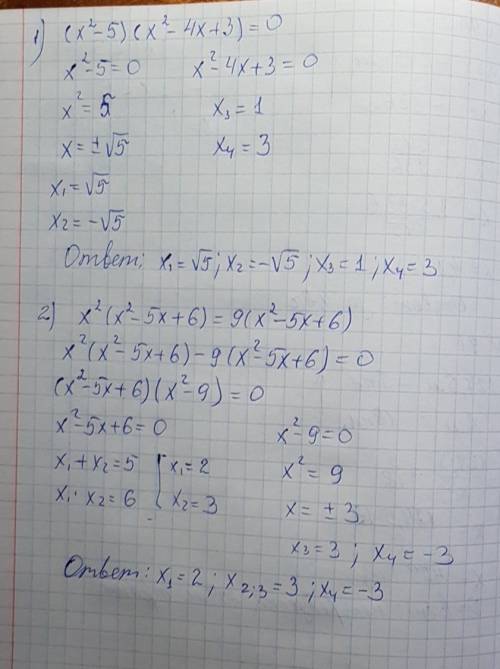 1) (x²-5)(x²-4x+3)=0
x²-5=0 x²-4x+3=0
x²=5 x₃=1
x=±√5 x₄=3
x₁=√5
x₂=-√5
Ответ: x₁=√5; x₂=-√5; x₃=1; x₄=3
2) x²(x²-5x+6)=9(x²-5x+6)
x²(x²-5x+6)-9(x²-5x+6)=0
(x²-5x+6)(x²-9)=0
x²-5x+6=0 x²-9=0
x₁+x₂=5 { x₁=2 x²=9
x₁·x₂=6 x₂=3 x=±3
x₃=3; x₄=-3
Ответ: x₁=2; x₂;₃=3; x₄=-3